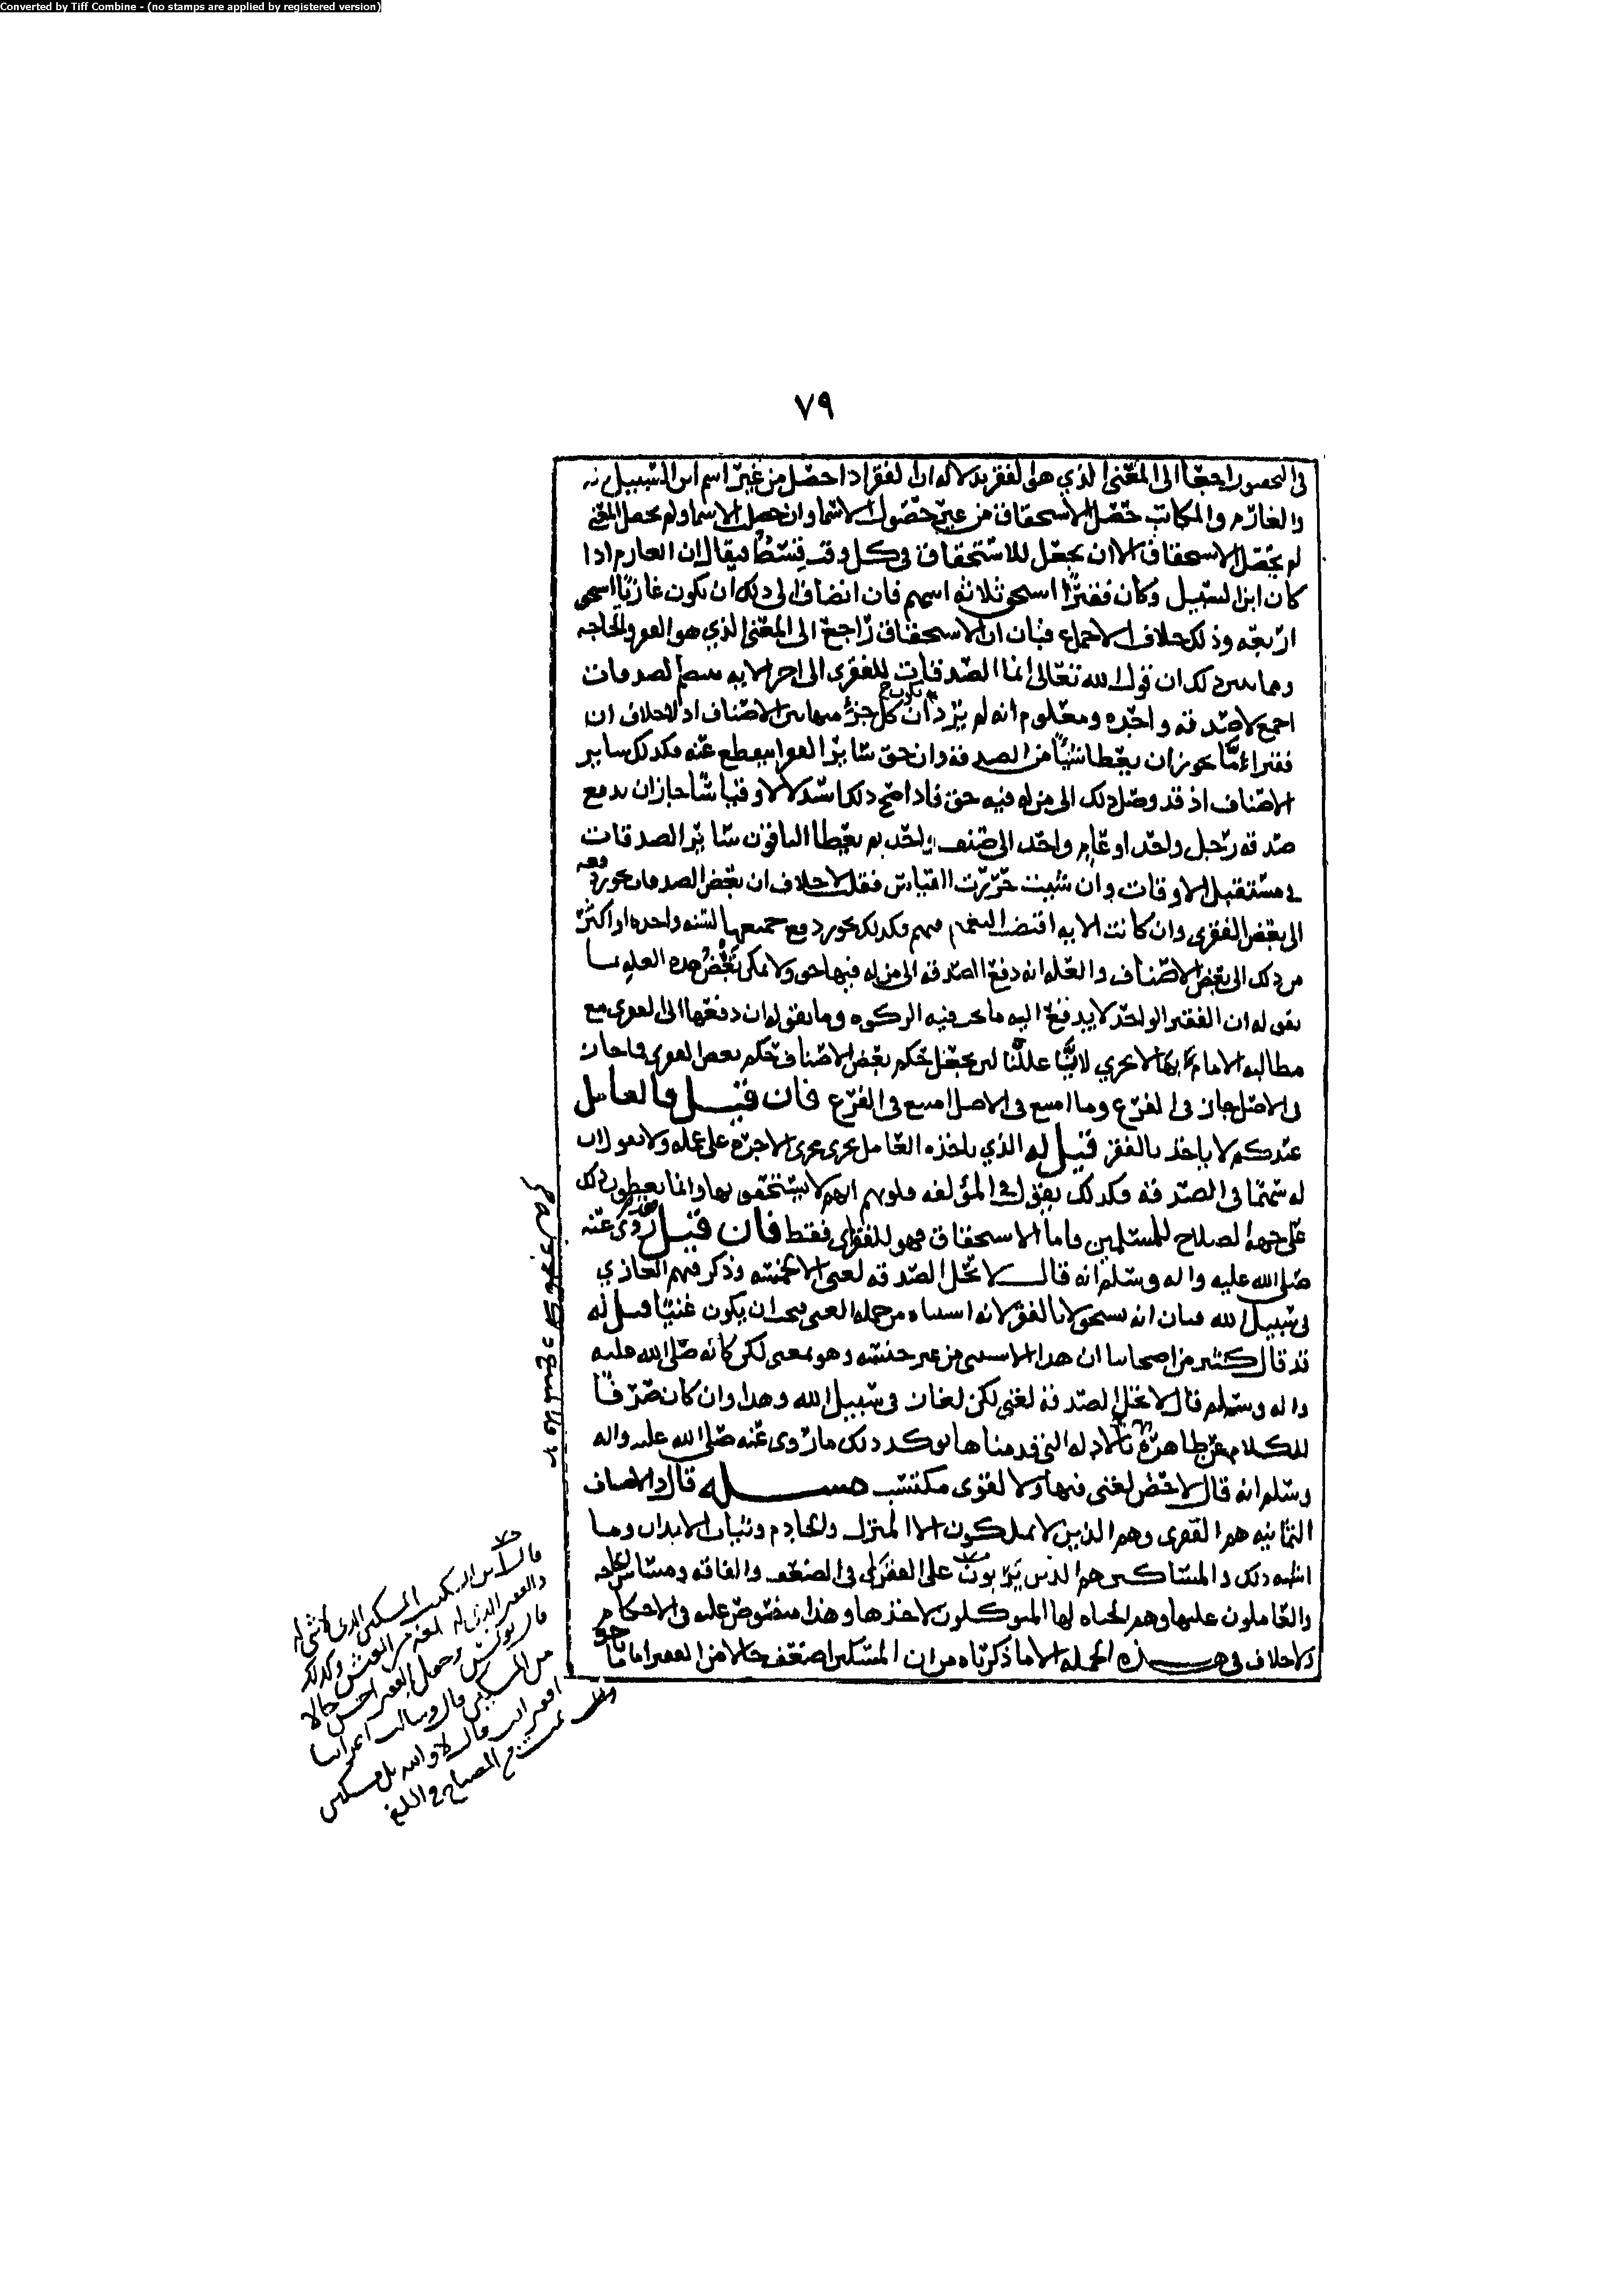 Converted by Tiff Combine - (no stamps are applied by registered version)
٧٩
في الحصور راجعا الى المعنى الذي هو الفقر بدلالة ان الفقر اذا حصل من غير اسم ابن السبيل
والغارم والمكاتب حصل الاستحقاق من غير حصول الاسما وان حصل الاسما ولم يحصل المعنى
لم يحصل الاستحقاق الا ان يجعل للاستحقاق في كل وقت قسط فيقال ان الغارم اذا
كان ابن السبيل وكان فقيرا استحق ثلاثة اسهم فان انضاف الى ذلك ان يكون غازيا استحق
اربعه وذلك خلاف الاجماع فبان ان الاستحقاق راجع الى المعنى الذي هو الفقر والحاجه
ومما ذلك ان قول الله تعالى انما الصدقات للفقرى الى اخر الايه الصدقات
اجمع لا صدقه واحده ومعلوم انه لم يرد ان يكون كل جزء منها بين الاصناف اذ لا خلاف ان
فقيرا ما يجوز ان يعطا شيئا من الصدقه وان حق سائر الفقرا ينقطع عنه فكذلك ساير
الاصناف اذ قد وصل ذلك الى من له فيه حق فاذا صح ذلك جاز ان يدفع
صدقه رجل واحد او عام واحد الى صنف واحد ثم يعطا الباقون سائر الصدقات
في مستقبل الاوقات وان شيت حررت القياس فقلت لا خلاف ان بعض الصدقات يجوز دفعه
الى بعض الفقرى وان كانت الايه اقتضت التعميم فيهم فكذلك يجوز دفع جميعها لسنه واحده او اكثر
من ذلك الى بعض الاصناف والعله انه دفع الصدقه الى من له فيها حق ولا يمكن نقض هذه العله بما
نقوله ان الفقير الواحد لا يدفع اليه ما تجب فيه الزكوه وما نقوله ان دفعها الى الفقرى مع
مطالبه الامام بها لا يجزي لانا عللنا لان نجعل حكم بعض الاصناف حكم بعض الفقرى فما جاز
في الاصل جاز في الفرع وما امتنع في الاصل امتنع في الفرع فان قيل فالعامل
عندكم لا ياخذ بالفقر قيل له الذي ياخذه العامل يجري مجرى الاجره على عمله ولا نقول ان
له سهما في الصدقه فكذلك نقول في المؤلفه قلوبهم انهم لا يستحقون بها وانما يعطون ذلك
على جهه الصلاح للمسلمين فاما الاستحقاق فهو للفقرى فقط فان قيل فقد روي عنه
صلى الله عليه واله وسلم انه قال لا تحل الصدقه لغني الا لخمسه وذكر فيهم الغازي
في سبيل الله فبان انه يستحق لا بالفقر لانه استثناه من جمله الغني فيجب ان يكون غنيا قيل له
قد قال كثير من اصحابنا ان هذا الاستثنى من غير جنسه وهو بمعنى لكن كانه صلى الله عليه
واله وسلم قال لا تحل الصدقه لغني لكن لغاز في سبيل الله وهذا وان كان صرفا
للكلام عن ظاهره فالادله التي قدمناها يوكد ذلك ما روي عنه صلى الله عليه واله
وسلم انه قال لا حظ لغني فيها ولا لقوي مكتسب مسله قال والاصناف
الثمانيه هم الفقرى وهم الذين لا يملكون الا المنزل والخادم وثياب الابدان وما
اشبه ذلك والمساكين هم الذين يزيدون على الفقرى في الضعف والفاقه ومساس الحاجه
والعاملون عليها وهم الجباه لها الموكلون لاخذها وهذا منصوص عليه في الاحكام
ولا خلاف في هذه الجمله الا ما ذكرناه من ان المسكين اضعف حالا من الفقير اما ما
قال ابن السكيت المسكين الذي لا شي له
والفقير الذي له بلغه من العيش وكذلك
قال يونس وجعل الفقير احسن حالا
من المسكين قال وسالت اعرابيا
افقير انت فقال لا والله بل مسكين
المصباح في اللغه